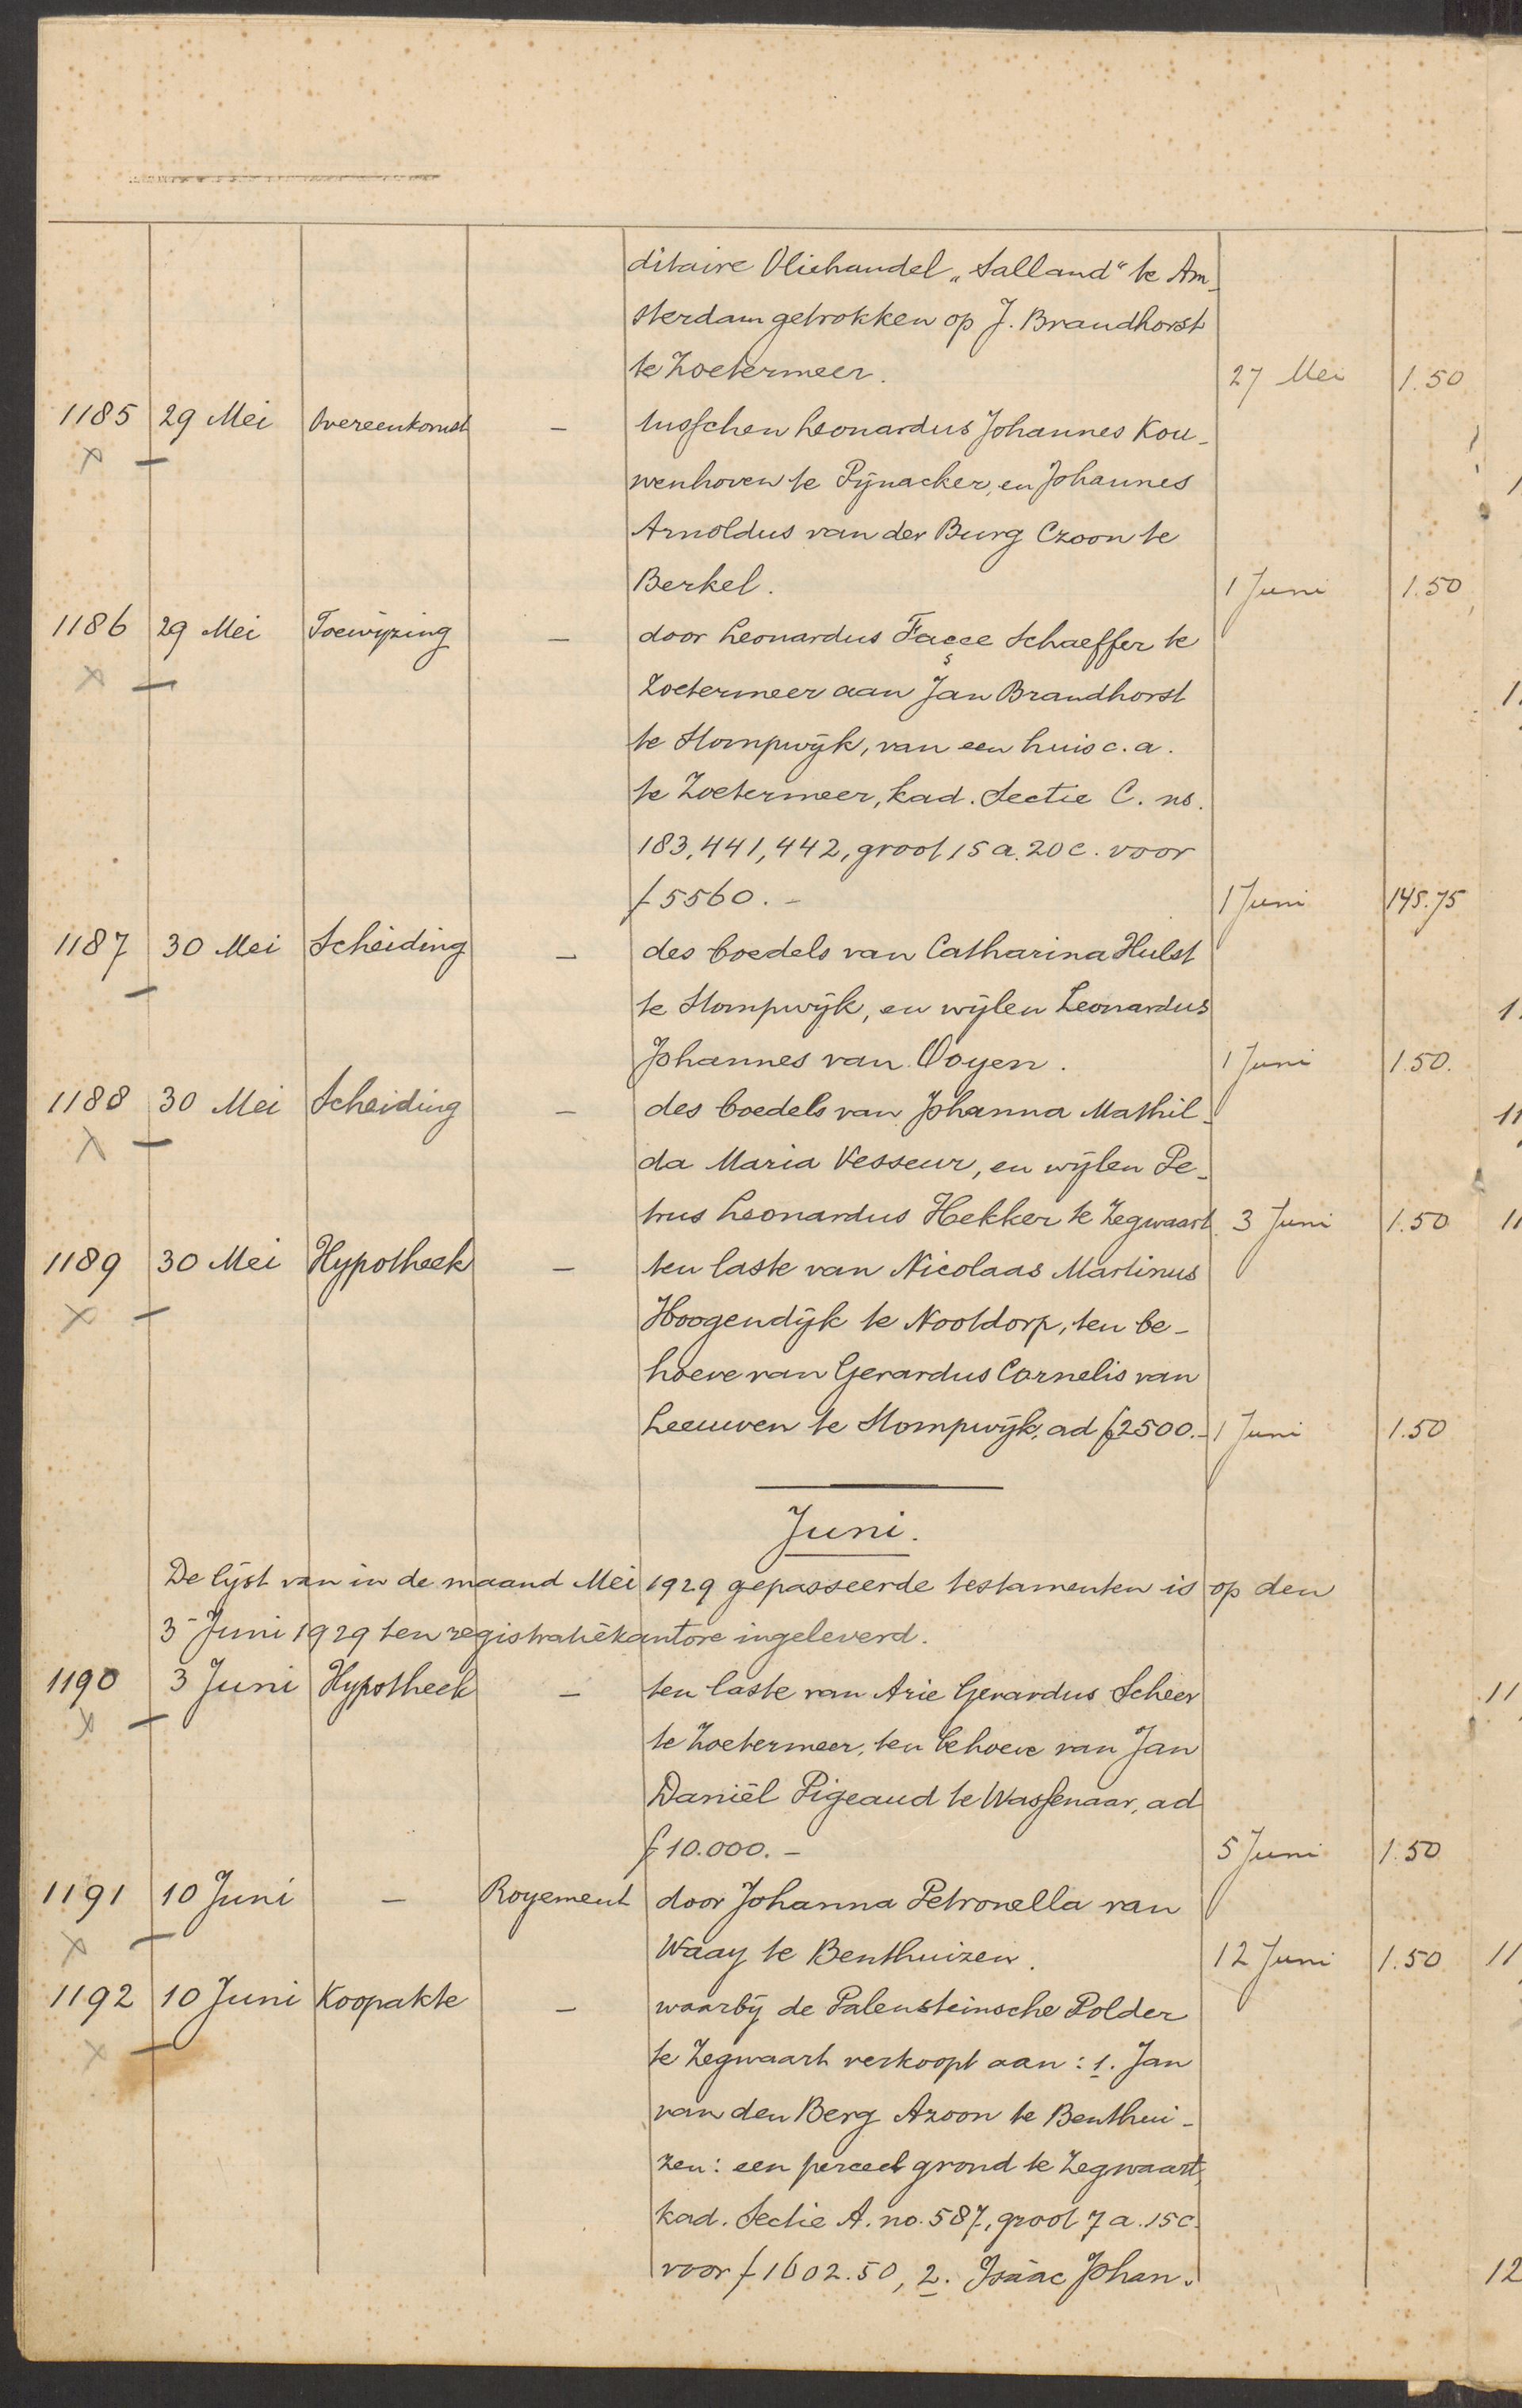 ditaire Oliehandel „Salland“ te Am-
sterdam getrokken op J. Brandhorst
te Zoetermeer. 27 Mei 1.50
1185 29 Mei Overeenkomst — tusschen Leonardus Johannes Kou-
wenhoven te Pijnacker, en Johannes
Arnoldus van der Burg Czoon te
Berkel. 1 Juni 1.50
1186 29 Mei Toewijzing — door Leonardus Facee Schaeffer te
s
Zoetermeer aan Jan Brandhorst
te Stompwijk, van een huis c.a.
te Zoetermeer, kad. Sectie C. ns.
183, 441, 442, groot 15 a. 20 c. voor
f 5560.- 1 Juni 145.75
1187 30 Mei Scheiding — des boedels van Catharina Hulst
te Stompwijk, en wijlen Leonardus
Johannes van Ooyen. 1 Juni 1.50.
1188 30 Mei Scheiding — des boedels van Johanna Mathil-
da Maria Vesseur, en wijlen Pe-
trus Leonardus Hekker te Zegwaart. 3 Juni 1.50
1189 30 Mei Hypotheek — ten laste van Nicolaas Martinus
Hoogendijk te Nootdorp, ten be-
hoeve van Gerardus Cornelis van
Leeuwen te Stompwijk, ad f 2500.- 1 Juni 1.50
Juni.
De lijst van in de maand Mei 1929 gepasseerde testamenten is op den
3 Juni 1929 ten registratiekantore ingeleverd.
1190 3 Juni Hypotheek — ten laste van Arie Gerardus Scheer
te Zoetermeer, ten behoeve van Jan
Daniël Pigeaud te Wassenaar, ad
f 10.000.- 5 Juni 1.50
1191 10 Juni — Royement door Johanna Petronella van
Waay te Benthuizen. 12 Juni 1.50
1192 10 Juni Koopakte — waarbij de Palensteinsche Polder
te Zegwaart verkoopt aan: 1. Jan
van den Berg Azoon te Benthui-
zen: een perceel grond te Zegwaart,
kad. Sectie A. no. 587, groot 7 a. 15 c.
voor f 1602.50, 2. Isäac Johan-